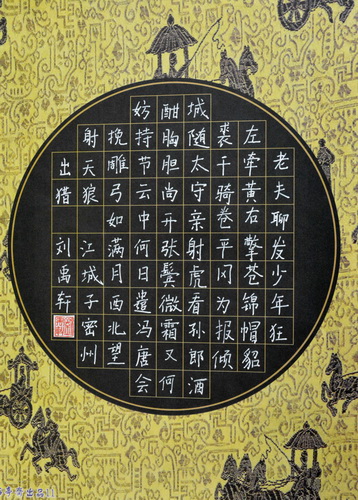 老夫聊发少年狂
左牵黄右擎苍锦帽貂
裘千骑卷平冈为报倾
城随太守亲射虎看孙郎酒
酣胸胆尚开张鬓微霜又何
妨持节云中何日遣冯唐会
挽雕弓如满月西北望
射天狼 江城子密州
出猎 刘禹轩